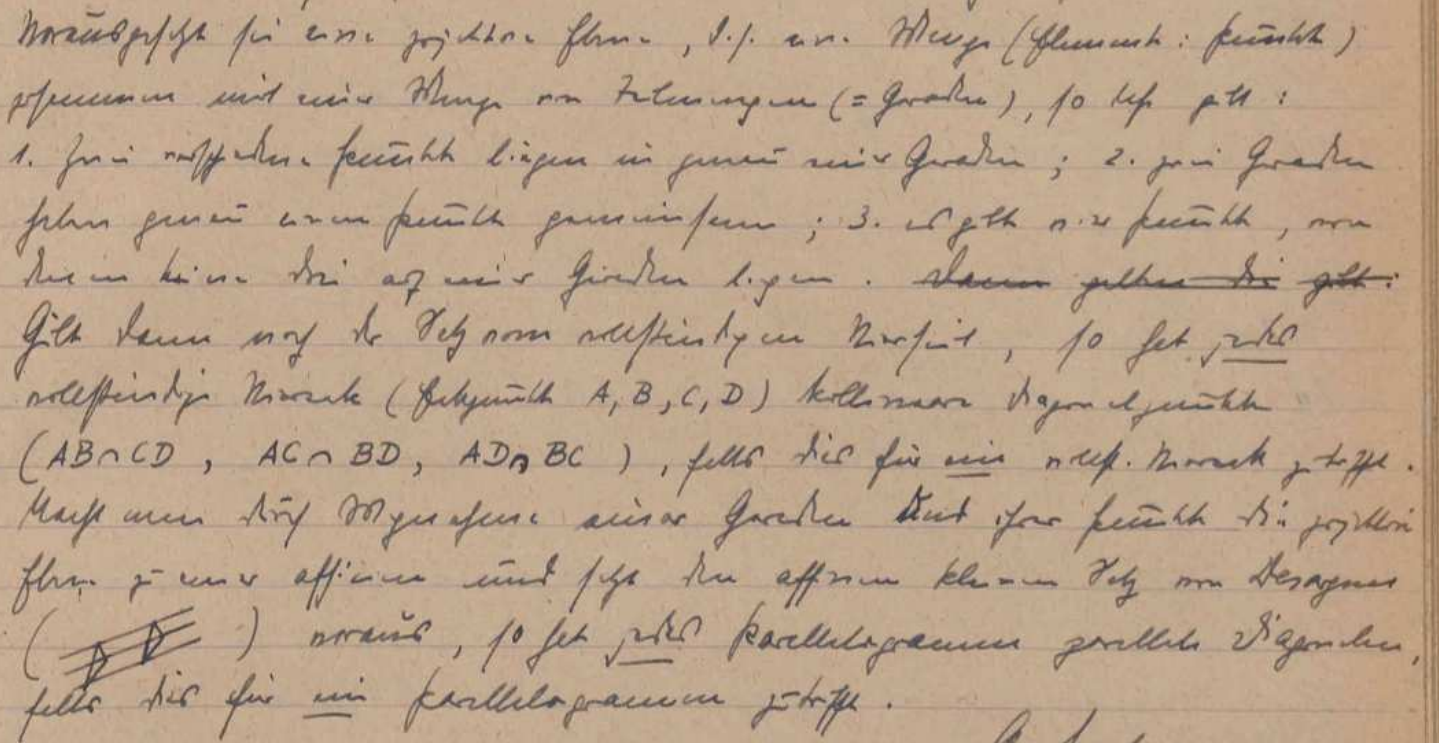 Vorausgesetzt sei eine projektive Ebene, d.h. eine Menge (Elemente: Punkte)
zusammen mit einer Menge von Teilmengen (= Geraden), so daß gilt:
1. Zwei verschiedene Punkte liegen in genau einer Geraden; 2. zwei Geraden
haben genau einen Punkt gemeinsam; 3. es gibt vier Punkte, von
denen keine drei auf einer Geraden liegen. Dann gelten die gilt:
Gilt dann noch der Satz vom vollständigen Vierseit, so hat jedes
vollständige Viereck (Eckpunkte A, B, C, D) kollineare Diagonalpunkte
(AB∩CD, AC∩BD, AD∩BC), falls dies für ein vollst. Viereck zutrifft.
Macht man durch Wegnahme einer Geraden und ihrer Punkte die projektive
Ebene zu einer affinen und setzt den affinen kleinen Satz von Desargues
( ) voraus, so hat jedes Parallelogramm parallele Diagonalen,
falls dies für ein Parallelogramm zutrifft.